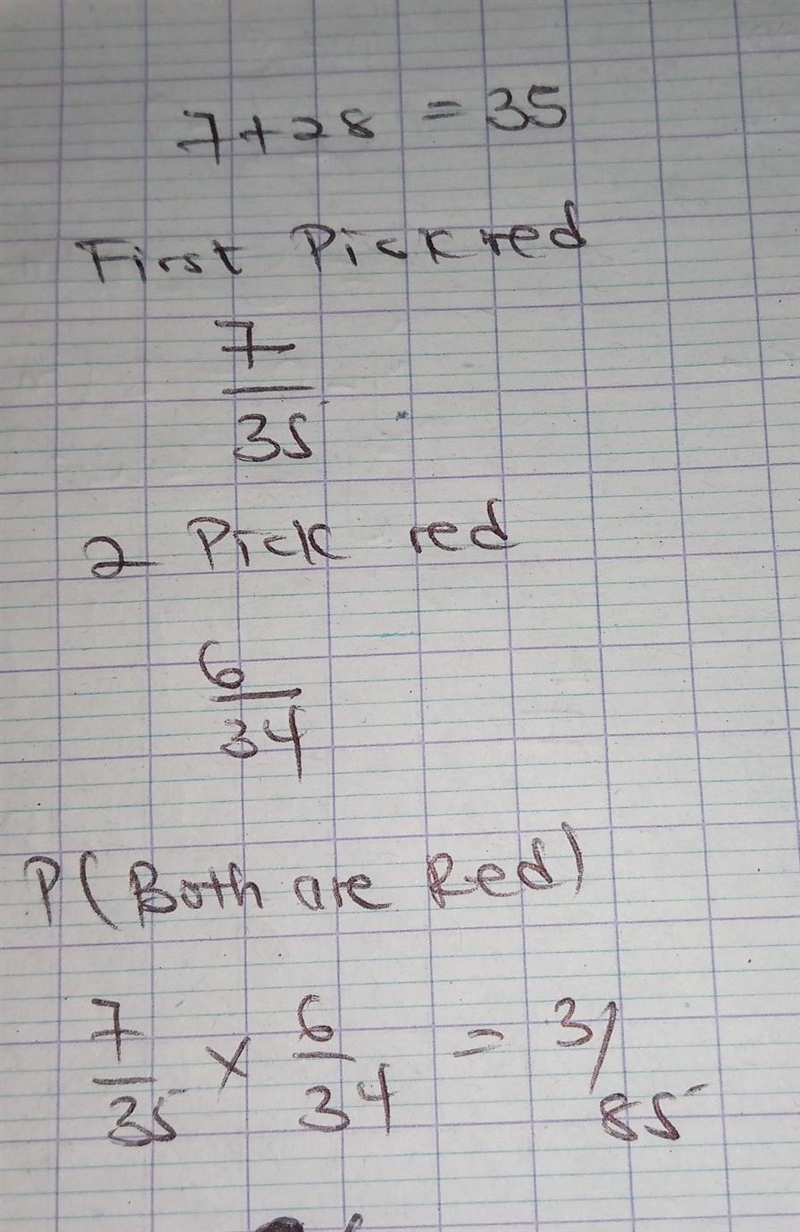 7+28 = 35
First Pick red
7
35
2 Pick red
6
34
P(Both are Red)
7/35 x 6/34 = 3/85